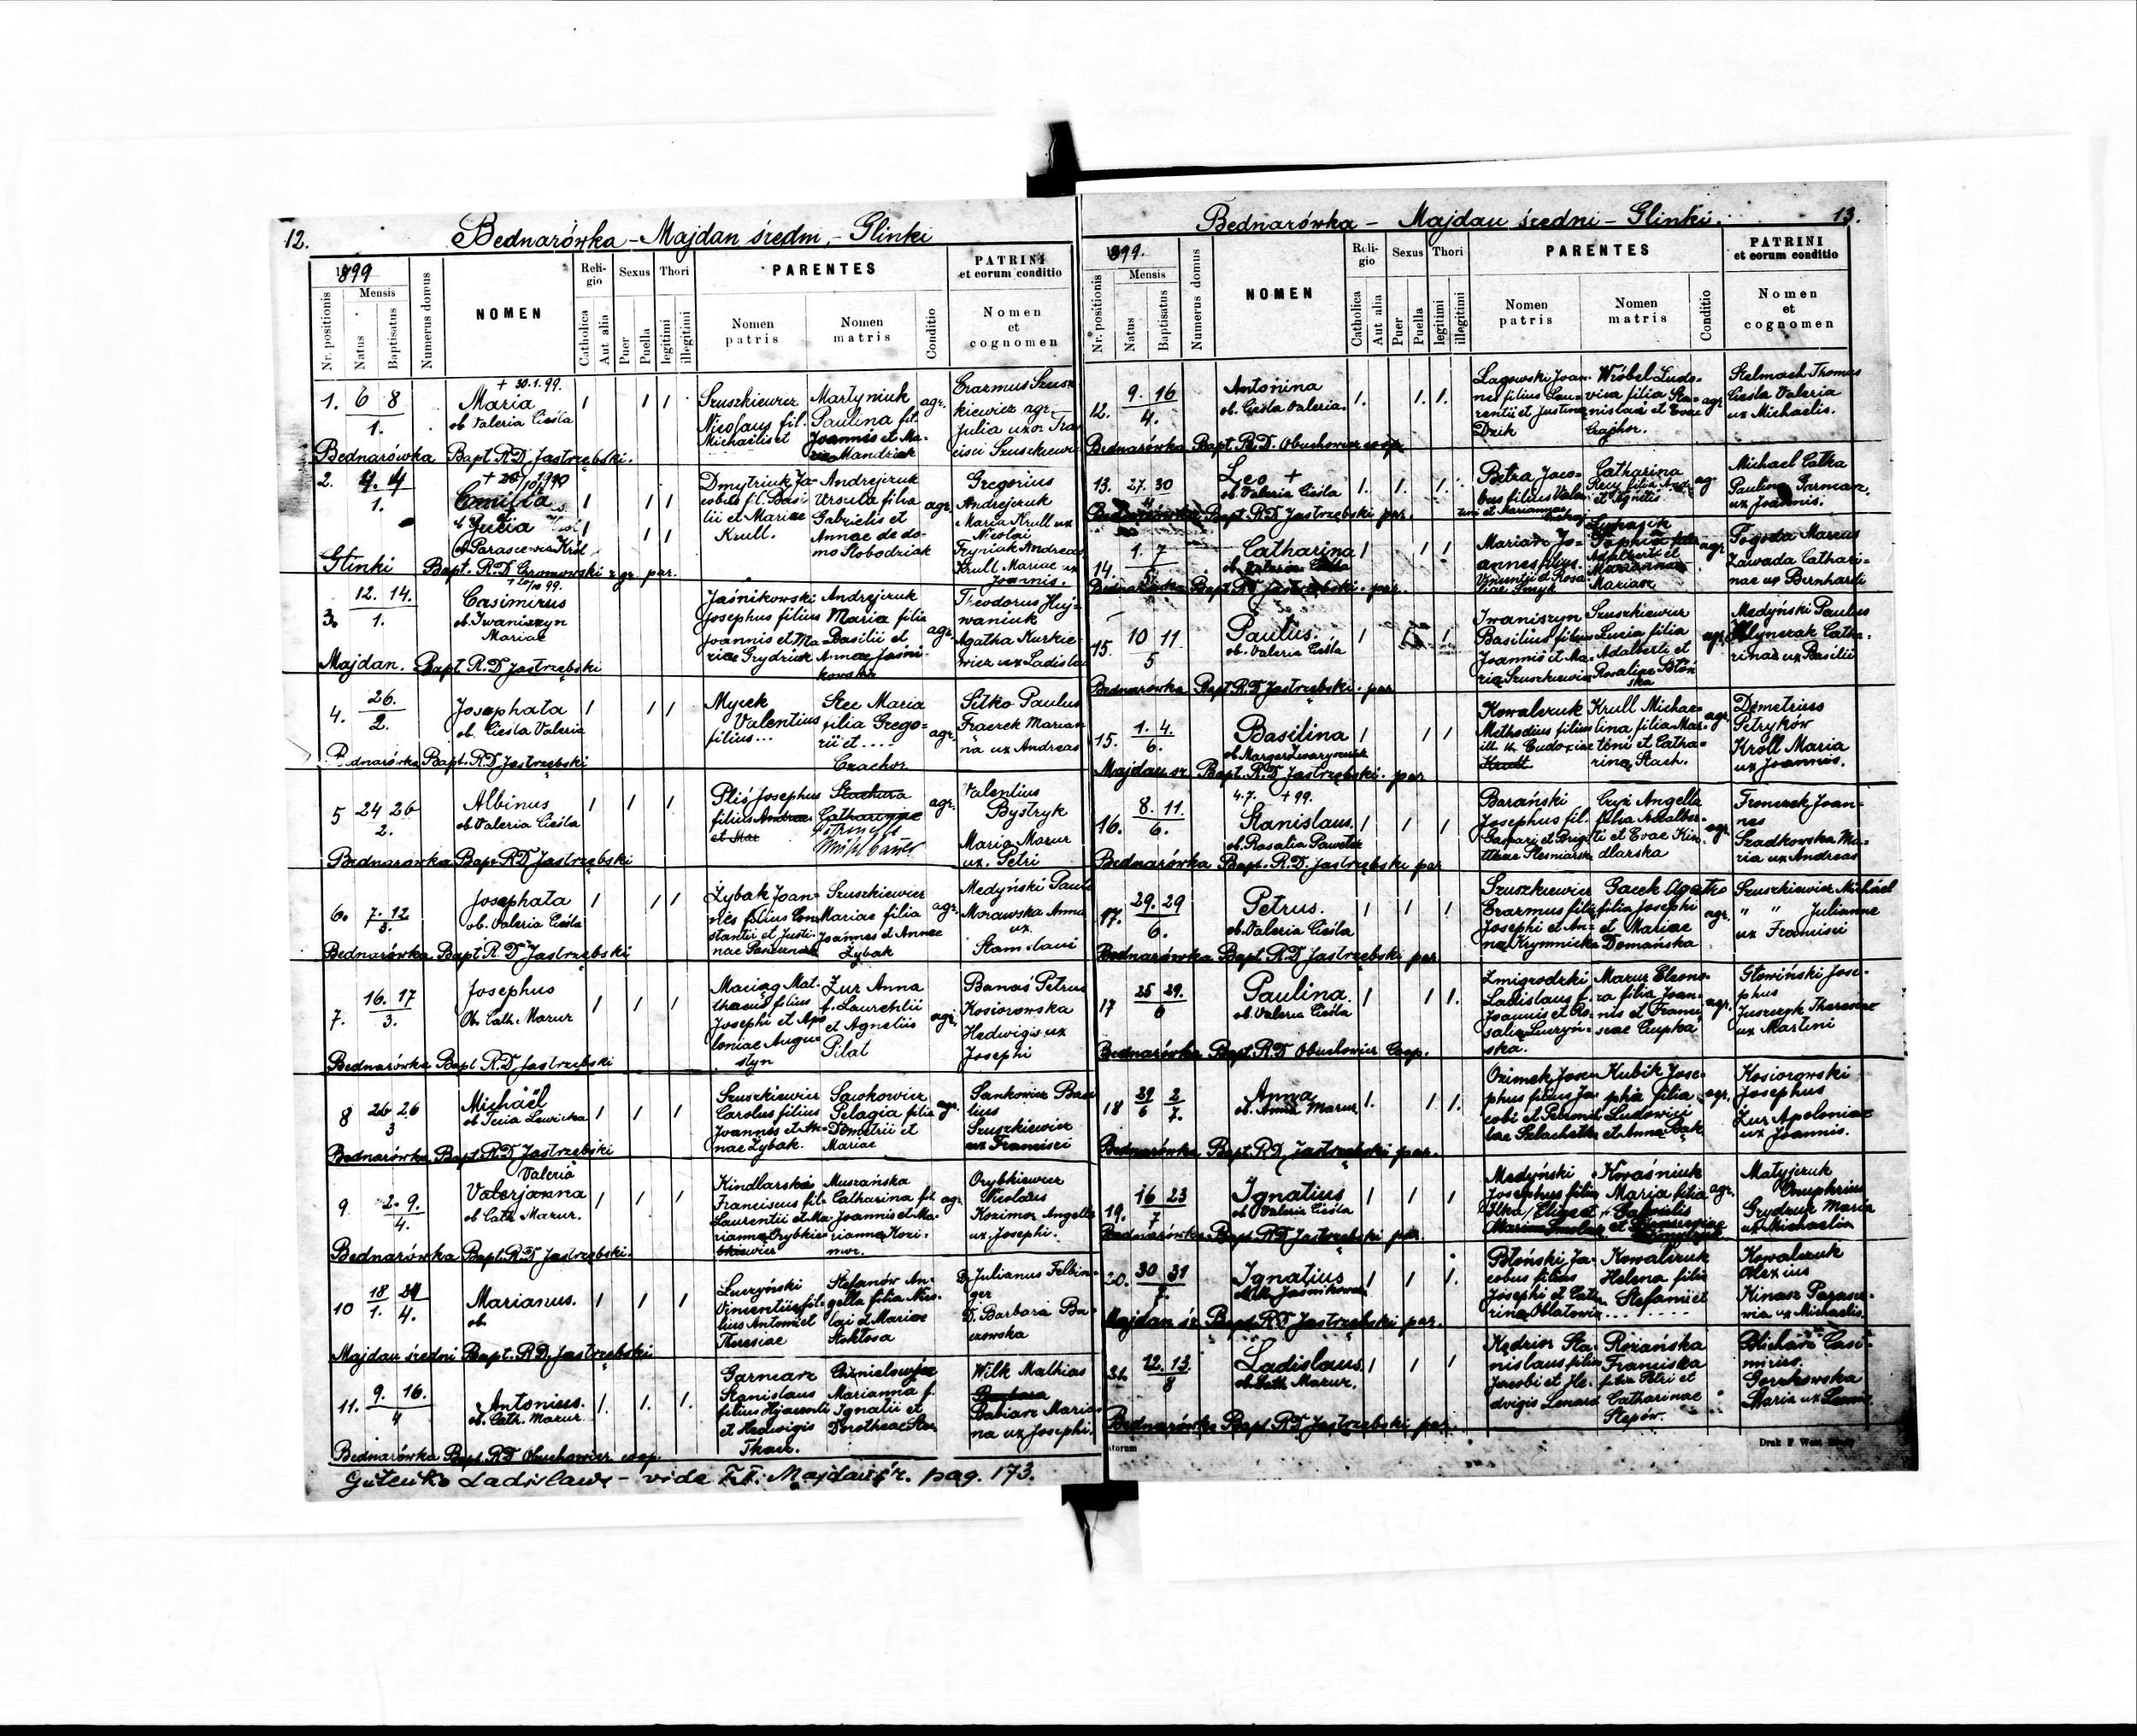 12.
Bednarówka – Majdan średni, – Glinki
1899
Nr. positionis
Mensis
Natus
Baptisatus
Numerus domus
NOMEN
Religio
Catholica
Aut alia
Sexus
Puer
Puella
Thori
legitimi
illegitimi
PARENTES
Nomen patris
Nomen matris
Conditio
PATRINI
et eorum conditio
Nomen
et
cognomen
1. 6 8
1.
+ 30.1.99.
Maria
ob Valeria Cieśla
Szuszkiewicz
Nicolaus fil.
Michaelis et
Martyniuk
Paulina fil.
Joannis et Ma-
riae Mandziak
agr.
Erazmus Szusz-
kiewicz agr.
Julia uxor Fra
cisci Szuszkiewicz
Bednarówka Bapt R.D. Jastrzębski.
2. 4. 4
1.
Camilla
et Julia
ob Parascevia Król
Dmytriuk Ja-
cobus fil. Basi-
lii et Mariae
Krull.
Andrejczuk
Ursula filia
Gabrielis et
Annae de do-
mo Słobodziak
agr.
Gregorius
Andrejczuk
Maria Krull ux
Nicolai
Fryniak Andreas
Krull Mariae ux
Joannis.
Glinki Bapt. R.D. Gromowski gr. par.
3. 12. 14.
1.
Casimirus
ob. Iwaniszyn
Mariae
Jaśnikowski
Josephus filius
Joannis et Ma-
riae Grydziuk
Andrejczuk
Maria filia
Basilii et
Annae Jaśni-
kowska
agr.
Theodorus Huj-
waniuk
Agatha Kurkie-
wicz ux Ladislai
Majdan. Bapt. R.D. Jastrzębski
4. 26.
2.
Josephata
ob. Cieśla Valeria
Mycek
Valentius
filius...
Stec Maria
filia Grego-
rii et ....
Czachor
agr.
Sitko Paulus
Fraczek Marian
na ux Andreas
Bednarówka Bapt. R.D. Jastrzębski
5 24 26
2.
Albinus
ob Valeria Cieśla
Pliś Josephus
filius Andreae
et Mar
Stachura
Catharinae
agr.
Valentius
Bystryk
Maria Mazur
ux. Petri
Bednarówka Bapt R.D. Jastrzębski
6. 7. 12
3.
Josephata
ob. Valeria Cieśla
Zybak Joan-
nes filius Con-
stantii et Justi-
nae
Szuszkiewicz
Mariae filia
Joannes et Annae
Zybak
agr.
Medyński Paul
Morawska Anna
ux.
Stanislaui
Bednarówka Bapt R.D. Jastrzębski
7. 16. 17
3.
Josephus
Ob. Cath. Mazur
Maciąg Mat-
thaeus filius
Josephi et Apo
loniae Augu-
styn
Zur Anna
f. Laurentii
et Agnetiis
Pilat
agr.
Banaś Petrus
Kosiorowska
Hedwigis ux
Josephi
Bednarówka Bapt R.D. Jastrzębski
8 26 26
3
Michaël
ob Tecia Lewicka
Szuszkiewicz
Carolus filius
Joannes et An-
nae Zybak.
Sawkowicz
Pelagia filia
Demetrii et
Mariae
agr.
Sankowicz Basi
lius
Szuszkiewicz
ux Francisci
Bednarówka Bapt. R.D. Jastrzębski
9 2. 9.
4.
Valeria
Valerjanna
ob Cath. Mazur.
Kindlarski
Franciscus fil-
Laurentii et Ma-
rianna Orybkie-
Muszańska
Catharina fil.
Joannis et Ma-
rianna Kozi-
mor.
agr.
Orybkiewicz
Nicolaus
Kozimor Angella
ux. Josephi.
Bednarówka Bapt. R.D. Jastrzębski.
10 18 24
1. 4.
Marianus.
ob
Luczyński
Vincentius fil-
lius Antoni et
Theresiae
Stefanów An-
gella filia Nico-
lai et Mariae
Stoktosa
Dr Julianus Felbin-
ger
D. Barbara Ba-
czowska
Majdan średni Bapt. R.D. Jastrzębski
11. 9. 16.
4
Antonius.
ob. Cath. Mazur
Garncarz
Stanislaus
filius Hyacinti
et Hedwigis
Tkacz.
Chmielowicz
Marianna f.
Ignatii et
Dorotheae
Wilk Mathias
Barbara
Babiarz Marian
na ux Josephi.
Bednarówka Bapt. R.D. Obuchowicz coop.
Gutenko Ladislaus – vide T.I. Majdan śr. pag. 173.
Bednarówka – Majdan średni – Glinki.
13.
1899.
Nr. positionis
Mensis
Natus
Baptisatus
Numerus domus
NOMEN
Religio
Catholica
Aut alia
Sexus
Puer
Puella
Thori
legitimi
illegitimi
PARENTES
Nomen patris
Nomen matris
Conditio
PATRINI
et eorum conditio
Nomen
et
cognomen
12. 9. 16
4.
Antonina
ob. Cieśla Valeria.
Lagowski Joan-
nes filius Lau-
rentii et Justina
Dzik
Wróbel Ludo-
vica filia Sta-
nislai et Evae
Czajhor.
agr
Stelmach Thomas
Cieśla Valeria
ux Michaelis.
Bednarówka Bapt R.D. Obuchowicz coop
13. 27. 30
4
Leo +
ob. Valeria Cieśla
Petra Jaco-
bus filius Valen-
tini et Mariannae
Catharina
Recy filia And-
et Agnetis
agr
Michael Catka
Paulina Garncarz
ux Joannis.
Bednarówka Bapt. R.D Jastrzębski par.
14. 1. 7
5.
Catharina
ob Valeria Cieśla
Marian Jo-
annes filius
Vincentii et Rosa-
liae Smyk
Sophia filia
Adalberti et
Marianna
Marian
agr
Pogoda Marcus
Zawada Cathari-
nae ux Bernhardi
Bednarówka Bapt R.D Jastrzębski. par.
15. 10 11
5
Paulus.
ob. Valeria Cieśla
Iwaniszyn
Basilius filius
Joannis et Ma-
ria Szuszkiewicz
Szuszkiewicz
Lucia filia
Adalberti et
Rosaliae Błoń
ska
agr.
Medyński Paulus
Młynczak Catha-
rinae ux Basilii
Bednarówka Bapt R.D. Jastrzębski. par
15. 1. 4.
6.
Basilina
Kowalczuk
Methodius filius
ill. u. Eudoxiae
Krull.
Krull Michae-
lina filia Mar-
tini et Catha-
rina Stach.
agr.
Demetrius
Petryków
Król Maria
ux Joannis.
Majdan śr Bapt. R.D. Jastrzębski. par
16. 8. 11.
6.
4.7. + 99.
Stanislaus.
ob. Rosalia Pawełek
Barański
Josephus fil.
Gaspari et Brigi-
ttae Slesniarsk
Cryż Angella
filia Adalber-
ti et Evae Kin-
dlarska
agr.
Fronczek Joan-
nes
Szadkowska Ma-
ria ux Andreas
Bednarówka Bapt. R.D. Jastrzębski par
17. 29. 29
6.
Petrus.
ob. Valeria Cieśla
Szuszkiewicz
Erazmus filius
Josephi et An-
na Krymnicka
Gacek Agatha
filia Josephi
et Mariae
Domańska
agr.
Szuszkiewicz Michael
" " Julianne
ux Francisci
Bednarówka Bapt. R.D. Jastrzębski par
17 25 29.
6
Paulina.
ob. Valeria Cieśla
Zmigrodzki
Ladislaus f.
Joannis et Ro-
salia Luczyń-
ska.
Mazur Eleono-
ra filia Joan-
nis et Franci
scae Cupka
agr.
Głowiński Jose-
phus
Juszczyk Theresiae
ux Martini
Bednarówka Bapt R.D Obuchowicz Coop.
18 29 2
6 7.
Anna
ob. Anna Mazur
Ozimek Jose-
phus filius Ja-
cobi et Petronel-
lae Szlachetka
Kubik Jose-
phia filia
Ludovici
et Anna Bąk
agr.
Kosiorowski
Josephus
Zur Apoloniae
ux Joannis.
Bednarówka Bapt. R.D. Jastrzębski par.
19. 16 23
7
Ignatius
ob Valeria Cieśla
Medyński
Josephus filius
Kwaśniuk
Maria filia
Gabrielis
agr.
Matyjczuk
Onuphrius
Grydzuk Maria
ux Michaelis
Bednarówka Bapt R.D Jastrzębski par.
20. 30 31
7.
Ignatius
Błoński Ja-
cobus filius
Josephi et Cata-
rina Oblatowicz
Kowalczuk
Helena filia
Stefani et
....
Kowalczuk
Alexius
Kinasz Parasce-
wia ux Michaelis.
Majdan śr Bapt. R.D Jastrzębski par.
31. 12. 13.
8
Ladislaus.
ob. Cath Mazur.
Kędzior Sta-
nislaus filius
Jacobi et He-
dvigis Lenard
Rożańska
Franciska
filia Petri et
Catharinae
Stepów.
Casi-
mirus.
Gorzkowska
Maria ux
Bednarówka Bapt R.D Jastrzębski par.